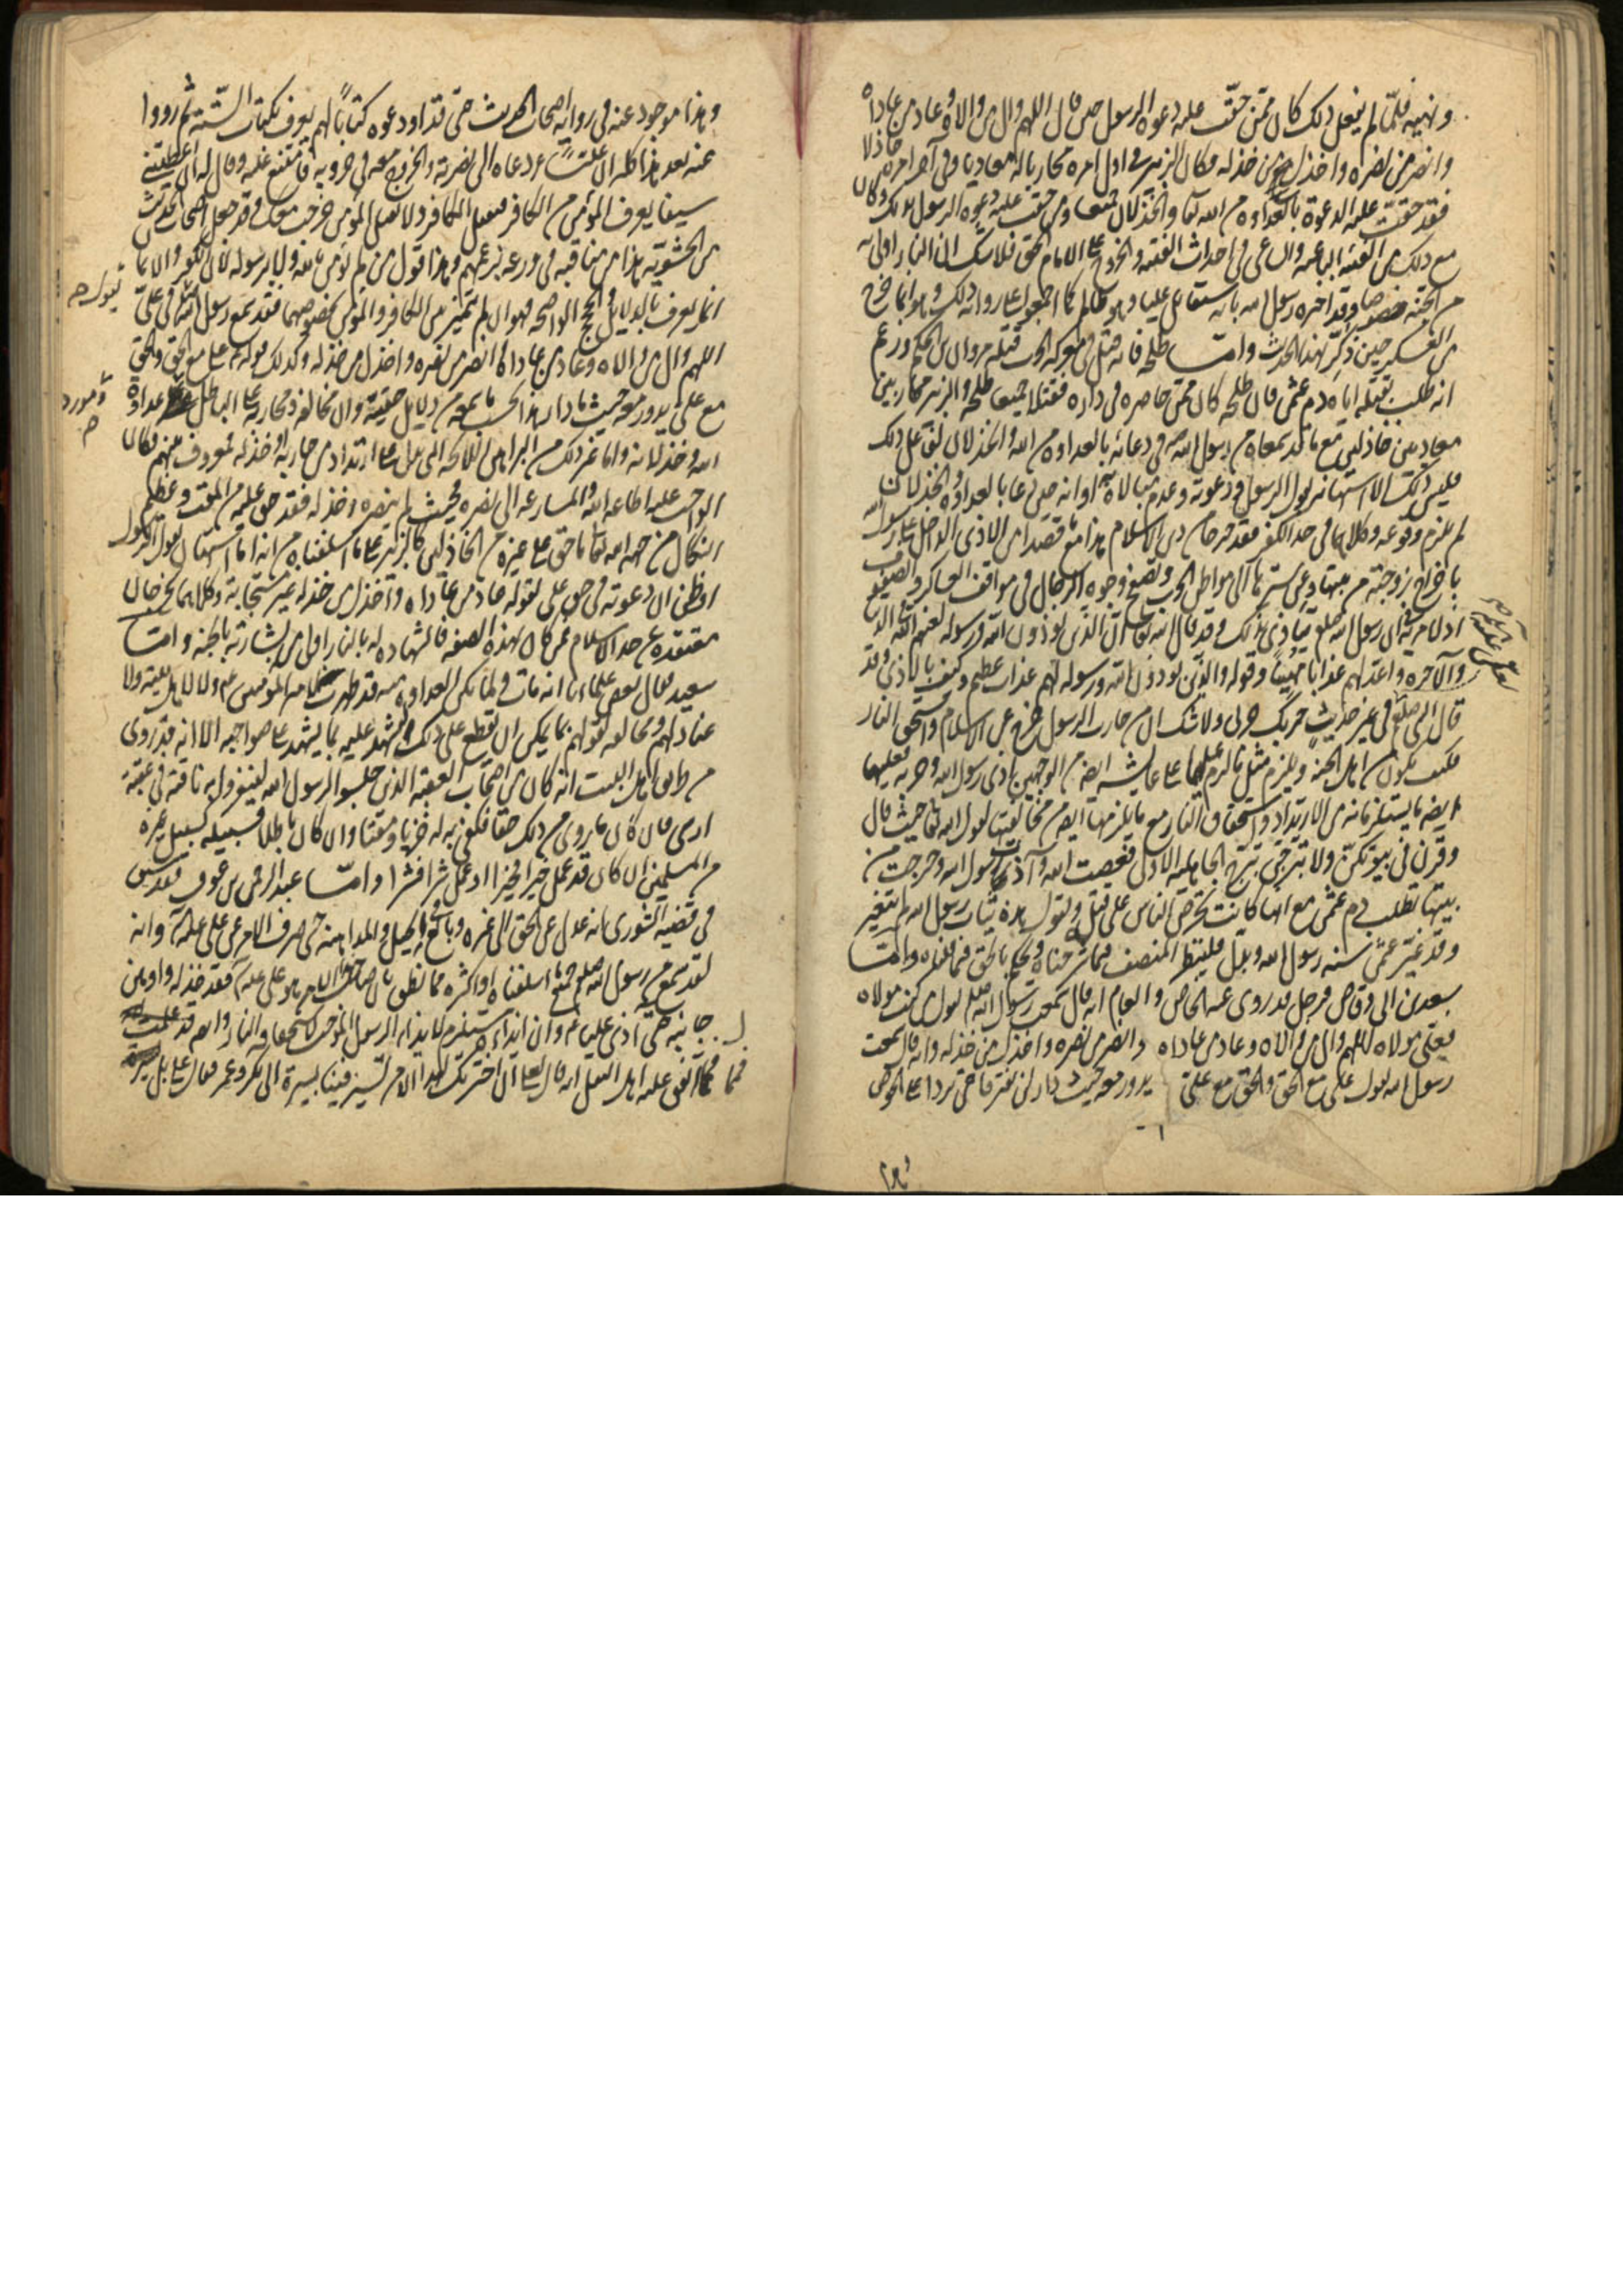 ونهيه فلمّا لم يفعل ذلك كان ممّن حقّت عليه دعوة الرسول حين قال اللهم وال من والاه وعاد من عاداه
وانصر من نصره واخذل من خذله وكان الزبير في اول امره محاربا له معاديا وفي آخر امره خاذلا
فقد حقّت عليه الدعوة بالعداوة من الله تعا والخذلان جميعا ومن حقت عليه دعوة الرسول بذلك وكان
مع ذلك من الفئة الباغية والساعي في احداث الفتنة والخروج على الامام الحق فلا شك ان النار اولى به
من الجنة خصوصا وقد اخبره رسول الله بانه سيقاتل عليا وهو ظالم كما اجمعوا على رواية ذلك وهو انما خرج
من العسكر حين ذكّر بهذا الحديث وامّا طلحة فانه قتل في معركة الحرب قتله مروان بن الحكم وزعم
انه طلب بقتله اياه دم عثمن فان طلحة كان ممن حاصره في داره فقتلا جميعا طلحة والزبير محاربين
معاديين خاذلين مع ما قد سمعاه من رسول الله في دعائه بالعداوة من الله والخذلان لمن فعل ذلك
فليس ذلك الا استهانة بقول الرسول ودعوته وعدم مبالاة به او انه حين دعا بالعداوة والخذلان
لم يلزم وقوعه وكلاهما في حد الكفر فقد خرجا من دين الاسلام هذا مع قصدهما من الاذى الداخل على رسول الله
باخراج زوجته من بيتها وهتك سترها الى مواطن الحرب وتصفح وجوه الرجال في مواقف العساكر والصفوف
اذ لا مرية في ان رسول الله صلعم يتاذى بذلك وقد قال الله تعالى ان الذين يؤذون الله ورسوله لعنهم الله في الدنيا
والآخرة واعد لهم عذابا مهينا وقوله والذين يؤذون الله ورسوله لهم عذاب عظيم وكيف بالاذى وقد
قال النبي صلعم في غير حديث حربك حربي ولا شك ان من حارب الرسول خرج عن الاسلام واستحق النار
فكيف يكون من اهل الجنة ويلزم مثل ما لزم عليهما على عايشة ايضا من الوجهين اذى رسول الله وحربه فعليها
ايضا ما يستلزمانه من الارتداد واستحقاق النار مع ما يلزمها ايضا من مخالفتها لقول الله تعا حيث قال
وقرن في بيوتكن ولا تبرجن تبرج الجاهلية الاولى فعصت الله وآذت رسول الله وخرجت من
بيتها تطلب دم عثمن مع انها كانت تحرض الناس على قتله وتقول هذه ثياب رسول الله لم تتغير
وقد غيّر عثمن سنة رسول الله وبدّل فلينظر المنصف فيما شرحناه ويحكم بالحق فيما نقلناه وامّا
سعد بن ابي وقاص فرجل قد روى عنه الخاص والعام انه قال سمعت رسول الله صلعم يقول من كنت مولاه
فعلي مولاه اللهم وال من والاه وعاد من عاداه وانصر من نصره واخذل من خذله وانه قال سمعت
رسول الله يقول علي مع الحق والحق مع علي يدور معه حيث دار لن يفترقا حتى يردا على الحوض
وهذا
وهذا موجود عنه في رواية اصحاب الحديث حتى قد اودعوه كتابا لهم يعرف بكتاب السنة ثم رووا
عنه بعد هذا كله ان عليا ع دعاه الى نصرته والخروج معه في حروبه فامتنع عنه وقال له ان اعطيتني
سيفا يعرف المؤمن من الكافر فيقتل الكافر ولا يقتل المؤمن خرجت معك وقد جعل اصحاب الحديث
من الحشوية هذا من مناقبه في ورعه بزعمهم وهذا قول من لم يؤمن بالله ولا برسوله لان الكفر والايمان
انما يعرف بالدلايل والحجج الواضحة فهو ان لم يتميز بين الكافر والمؤمن بخصوصهما فقد سمع رسول الله في علي
يقول
اللهم وال من والاه وعاد من عاداه وانصر من نصره واخذل من خذله وكذلك قوله علي مع الحق والحق
مع علي يدور معه حيث ما دار هذا بحسب ما سمعه من دلايل حقيته وان مخالفه ومحاربه على الباطل عداوة
ومورد
الله وخذلانه واما غير ذلك من البراهين اللائحة التي تدل على ارتداد من حاربه او خذله فمعروف بينهم فكان
الواجب عليه اطاعة الله والمسارعة الى نصره فحيث لم ينصره وخذله فقد حق عليه من المقت وعظيم
النكال من جهة الله تعا ما حق على غيره من الخاذلين كالزبير على ما اسلفناه من انه اما استهان بقول الرسول
او ظن ان دعوته في حق علي لقوله عاد من عاداه واخذل من خذله غير مستجابة وكلاهما يخرجان
معتقده عن حد الاسلام فمن كان بهذه الصفة فالشهادة له بالنار اولى من بشارته بالجنة وامّا
سعيد فقال بعض علماءنا انه مات ولما يكن العداوة منه قد ظهرت لامير المؤمنين ع ولا لاهل بيته ولا
عنادا لهم ومخالفة لقولهم بما يمكن ان يقطع على ذلك ويشهد عليه بما يشهد على صواحبه الا انه قد روي
من طريق اهل البيت انه كان من اصحاب العقبة الذين جلسوا لرسول الله لينفروا به ناقته في عقبة
اذى فان كان ما روي من ذلك حقا فكفى به له خزيا ومقتا وان كان باطلا فسبيله كسبيل غيره
من المسلمين ان كان قد عمل خيرا فخيرا او عمل شرا فشرا وامّا عبد الرحمن بن عوف فقد سبق
في قضية الشورى انه عدل عن الحق الى غيره وبالغ في الحيل والمداهنة حتى صرف الامر عن علي عليه السلام وانه
لقد سمع من رسول الله صلعم جميع ما اسلفناه او اكثره مما نطق بان صاحب الامر هو علي عليه السلام فقد خذله واوهن
جانبه حتى آذى عليا ع وان ايذاءه مستلزم لايذاء الرسول الموجب لاستحقاقه النار والله قد علمت
فيما مما اتفق عليه اهل النقل انه قال لعلي ان اخترتك لهذا الامر تسير فينا بسيرة ابي بكر وعمر فقال علي بل بسيرة